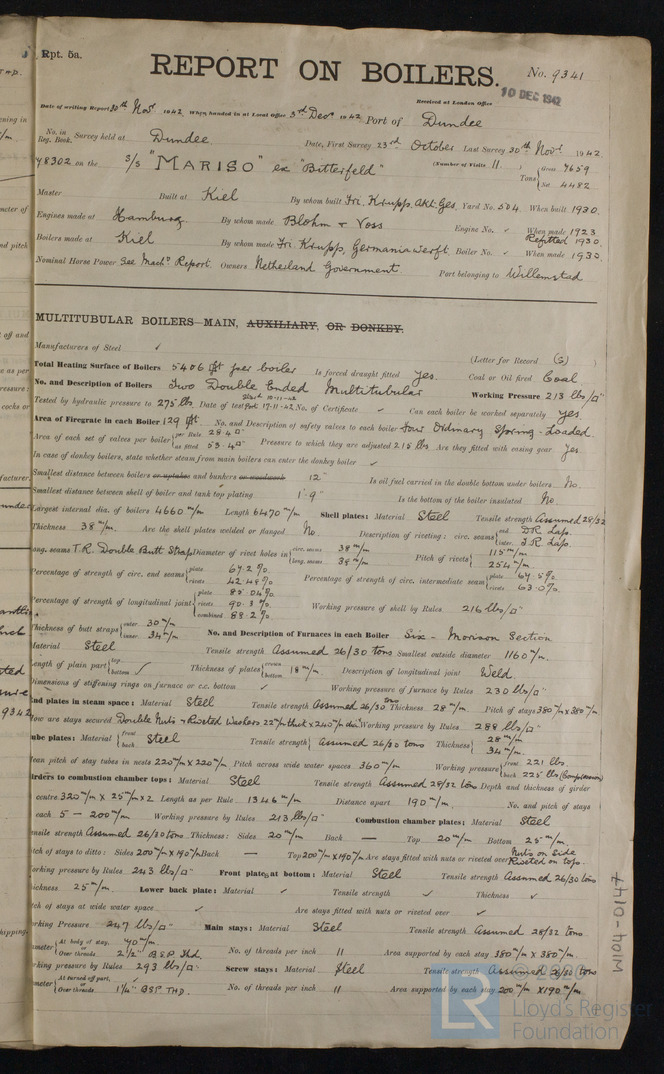 Rpt. 5a.
REPORT ON BOILERS.
No. 9341
Received at London Office
10 DEC 1942
Date of writing Report 30th Novr. 1942 When handed in at Local Office 3rd Decr. 1942 Port of Dundee
No. in Reg. Book. Survey held at Dundee Date, First Survey 23rd October Last Survey 30th Novr. 1942
48302 on the S/S "MARISO" ex "Bitterfeld" (Number of Visits 11. ) Tons Gross 7659 Net 4482
Master Built at Kiel By whom built Fri. Krupps. Akt. Ges. Yard No. 504. When built 1930.
Engines made at Hamburg By whom made Blohm + Voss Engine No. ✓ When made 1923 Refitted 1930.
Boilers made at Kiel By whom made Fri. Krupps, Germaniawerft. Boiler No. ✓ When made 1930.
Nominal Horse Power See Machy. Report. Owners Netherland Government. Port belonging to Willemstad
MULTITUBULAR BOILERS—MAIN, AUXILIARY, OR DONKEY.
Manufacturers of Steel ✓ (Letter for Record (S) )
Total Heating Surface of Boilers 5406 ft per boiler Is forced draught fitted Yes. Coal or Oil fired Coal
No. and Description of Boilers Two Double Ended Multitubular Working Pressure 213 lbs/□"
Tested by hydraulic pressure to 275 lbs. Date of test Stbd 10-11-42 Port 17-11-42. No. of Certificate ✓ Can each boiler be worked separately Yes
Area of Firegrate in each Boiler 129 ft No. and Description of safety valves to each boiler Four Ordinary Spring-Loaded.
Area of each set of valves per boiler per Rule 28.4□" as fitted 53.4□" Pressure to which they are adjusted 215 lbs Are they fitted with easing gear Yes.
In case of donkey boilers, state whether steam from main boilers can enter the donkey boiler ✓
Smallest distance between boilers or uptakes and bunkers or woodwork 12" Is oil fuel carried in the double bottom under boilers No.
Smallest distance between shell of boiler and tank top plating 1'-9" Is the bottom of the boiler insulated No.
Largest internal dia. of boilers 4660 m/m Length 6470 m/m Shell plates: Material Steel Tensile strength Assumed 28/32
Thickness 38 m/m. Are the shell plates welded or flanged No. Description of riveting: circ. seams end D.R. Lap. inter. 3.R. Lap.
long. seams T.R. Double Butt Strap Diameter of rivet holes in circ. seams 38 m/m long. seams 38 m/m Pitch of rivets 115 m/m 254 m/m.
Percentage of strength of circ. end seams plate 67.2% rivets 42.48% Percentage of strength of circ. intermediate seam plate 67.5% rivets 63.0%.
Percentage of strength of longitudinal joint plate 85.04% rivets 90.3% combined 88.2% Working pressure of shell by Rules 216 lbs/□"
Thickness of butt straps outer 30 m/m inner 34 m/m. No. and Description of Furnaces in each Boiler Six - Morison Section
Material Steel Tensile strength Assumed 26/30 tons Smallest outside diameter 1160 m/m.
Length of plain part top bottom ✓ Thickness of plates crown bottom 18 m/m. Description of longitudinal joint Weld.
Dimensions of stiffening rings on furnace or c.c. bottom ✓ Working pressure of furnace by Rules 230 lbs/□"
End plates in steam space: Material Steel Tensile strength Assumed 26/30 tons Thickness 28 m/m Pitch of stays 380 m/m x 380 m/m.
How are stays secured Double Nuts + Riveted Washers 22 m/m thick x 240 m/m dia Working pressure by Rules 288 lbs/□"
Tube plates: Material front back Steel Tensile strength Assumed 26/30 tons Thickness 28 m/m 34 m/m.
Mean pitch of stay tubes in nests 220 m/m x 220 m/m. Pitch across wide water spaces 360 m/m Working pressure front 221 lbs. back 225 lbs (Compression)
Girders to combustion chamber tops: Material Steel Tensile strength Assumed 28/32 tons Depth and thickness of girder
centre 320 m/m x 25 m/m x 2 Length as per Rule 1346 m/m Distance apart 190 m/m. No. and pitch of stays
each 5 - 200 m/m Working pressure by Rules 213 lbs/□" Combustion chamber plates: Material Steel
Tensile strength Assumed 26/30 tons. Thickness: Sides 20 m/m Back — Top 20 m/m Bottom 25 m/m.
Pitch of stays to ditto: Sides 200 m/m x 190 m/m Back — Top 200 m/m x 190 m/m Are stays fitted with nuts or riveted over Nuts on side Riveted on tops.
Working pressure by Rules 243 lbs/□" Front plate at bottom: Material Steel Tensile strength Assumed 26/30 tons
Thickness 25 m/m. Lower back plate: Material ✓ Tensile strength ✓ Thickness ✓
Pitch of stays at wide water space ✓ Are stays fitted with nuts or riveted over ✓
Working Pressure 247 lbs/□" Main stays: Material Steel Tensile strength Assumed 28/32 tons.
Diameter At body of stay, 70 m/m. or Over threads 2 1/2" B.S.P. Thd. No. of threads per inch 11 Area supported by each stay 380 m/m x 380 m/m.
Working pressure by Rules 293 lbs/□" Screw stays: Material Steel Tensile strength Assumed 26/30 tons
Diameter At turned off part, ✓ or Over threads 1 1/4" BSP THD. No. of threads per inch 11 Area supported by each stay 200 m/m x 190 m/m.
W104-0147
© 2020
LR Lloyd's Register
Foundation